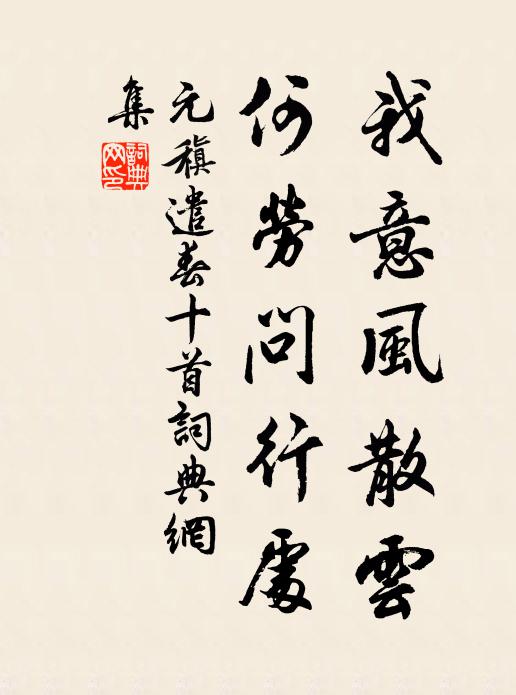 我意風散雲
何勞問行處
元稹遣春十首詞典網
集
詞典網印